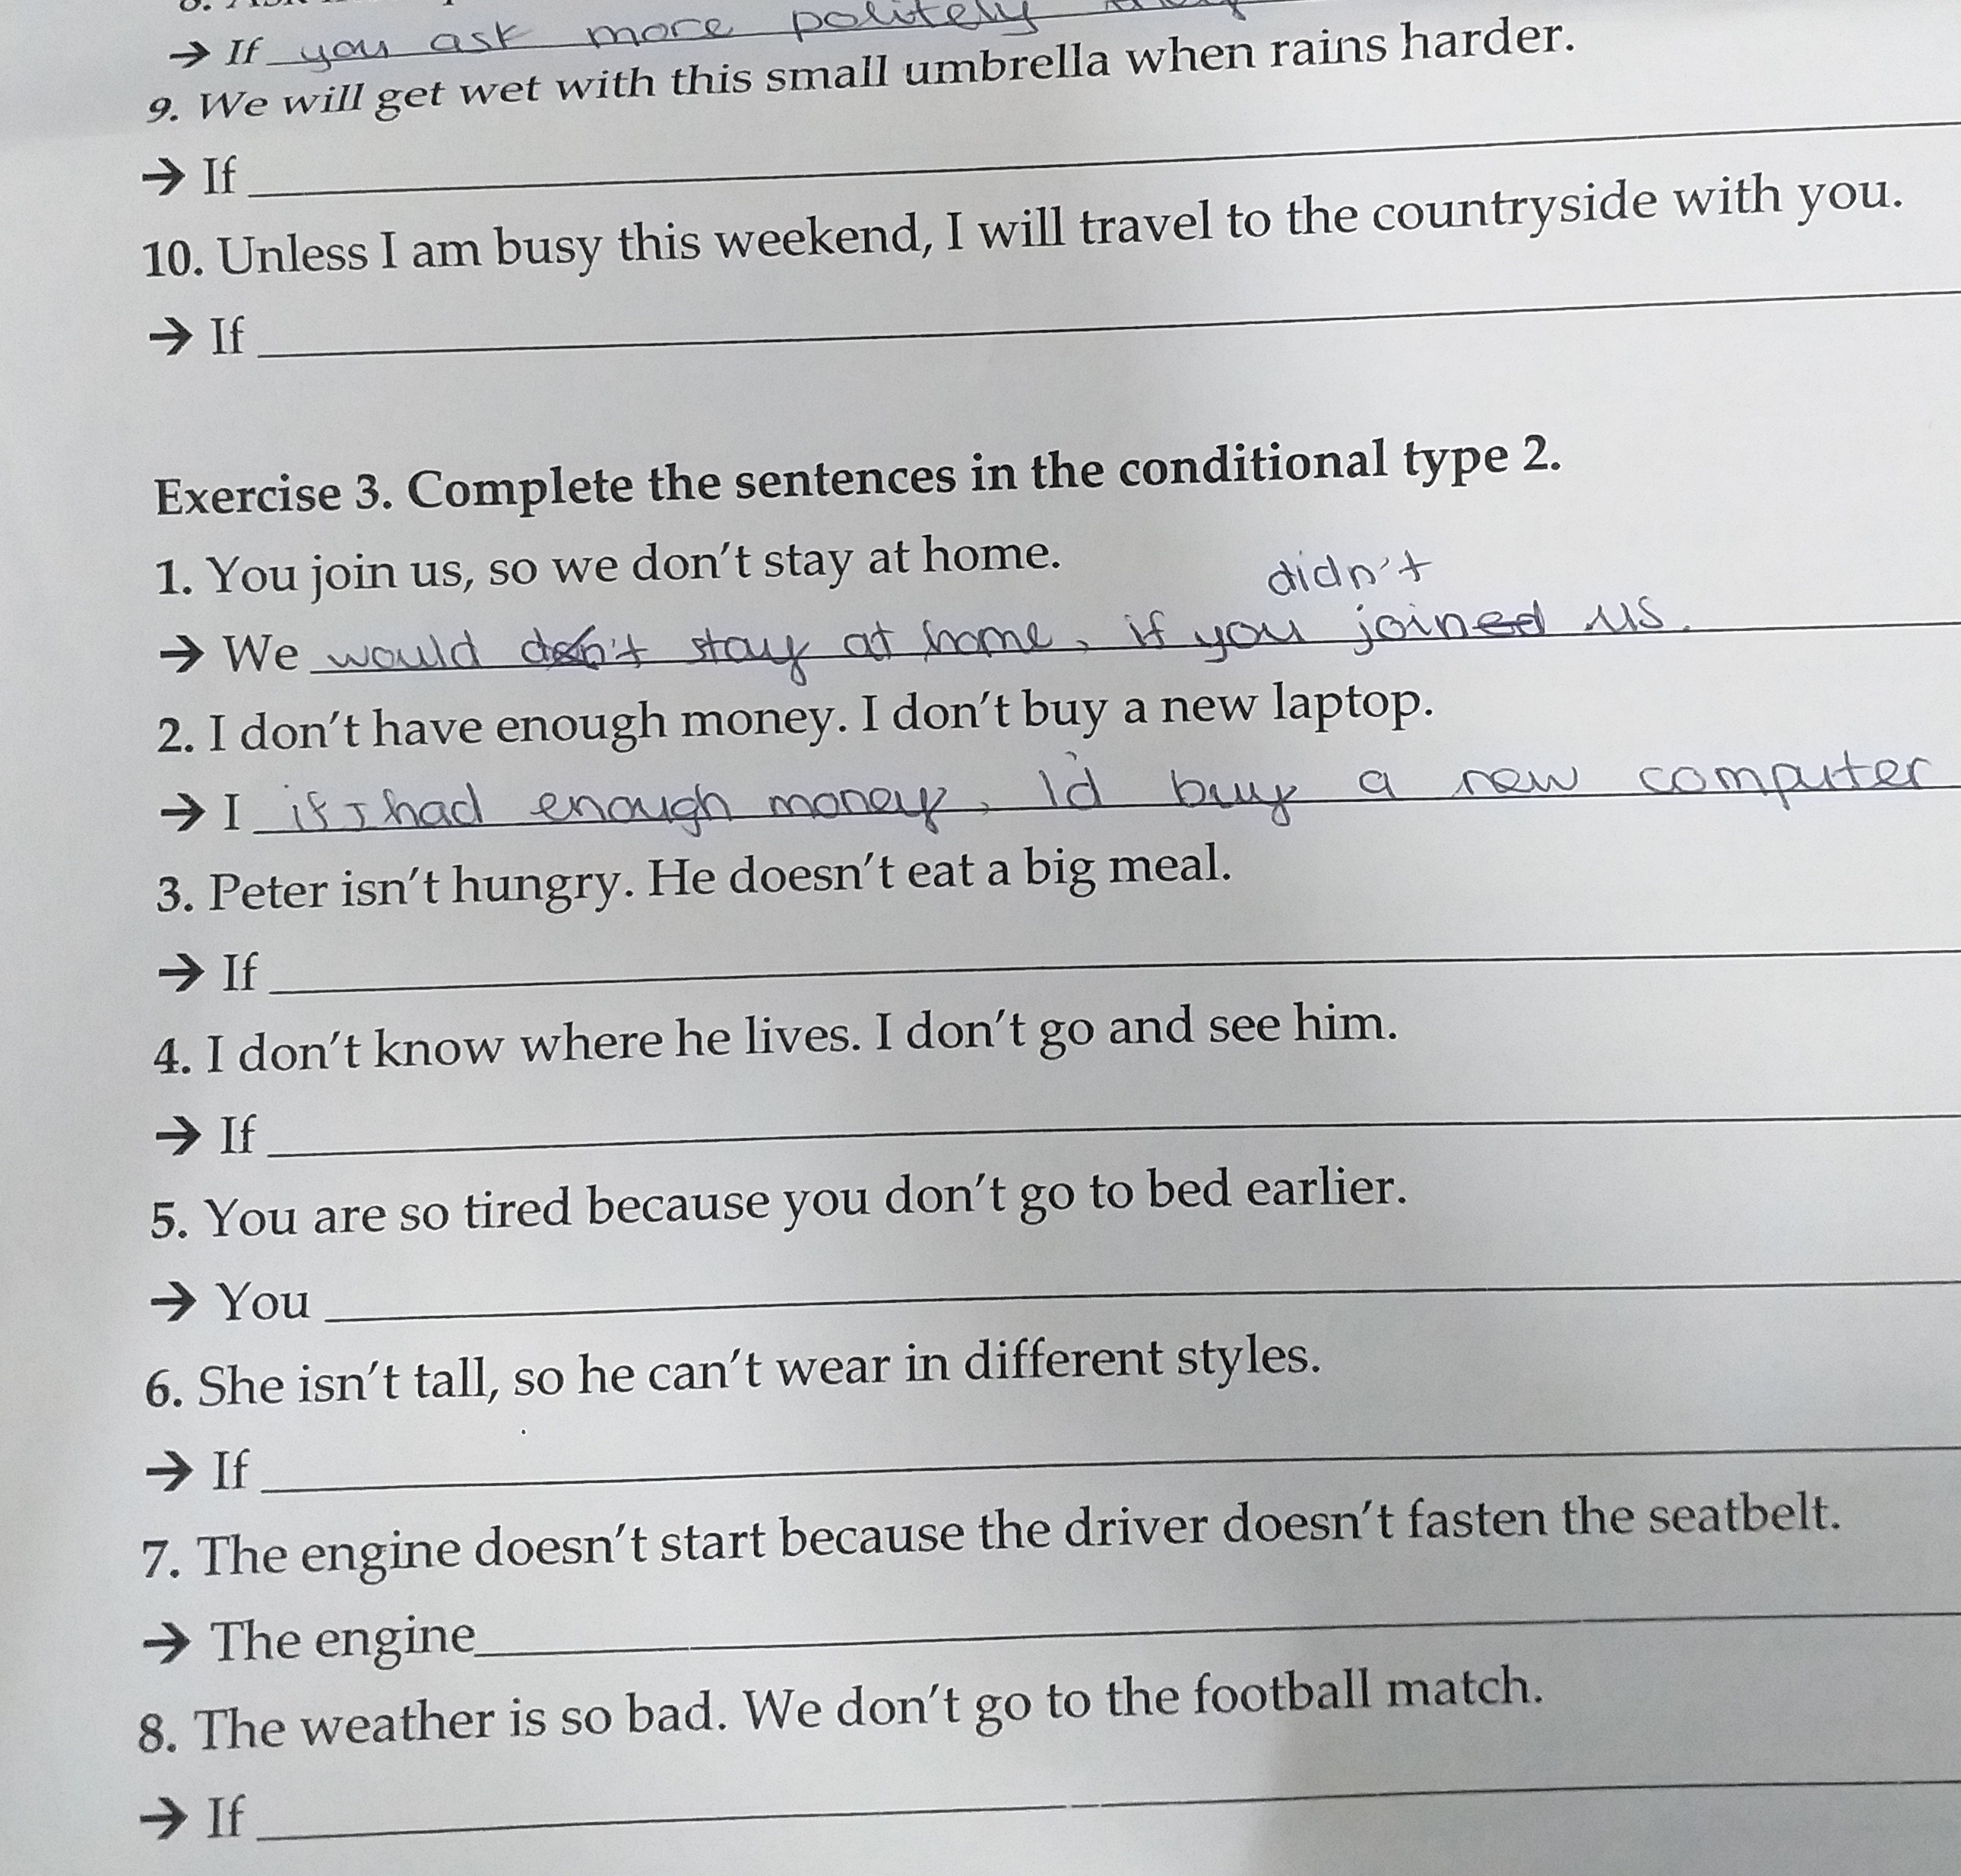 → If you ask more politely
9. We will get wet with this small umbrella when rains harder.
→ If
10. Unless I am busy this weekend, I will travel to the countryside with you.
→ If
Exercise 3. Complete the sentences in the conditional type 2.
1. You join us, so we don't stay at home.
didn't
→ We would don't stay at home, if you joined us.
2. I don't have enough money. I don't buy a new laptop.
→ I if I had enough money, I'd buy a new computer
3. Peter isn't hungry. He doesn't eat a big meal.
→ If
4. I don't know where he lives. I don't go and see him.
→ If
5. You are so tired because you don't go to bed earlier.
→ You
6. She isn't tall, so he can't wear in different styles.
→ If
7. The engine doesn't start because the driver doesn't fasten the seatbelt.
→ The engine
8. The weather is so bad. We don't go to the football match.
→ If